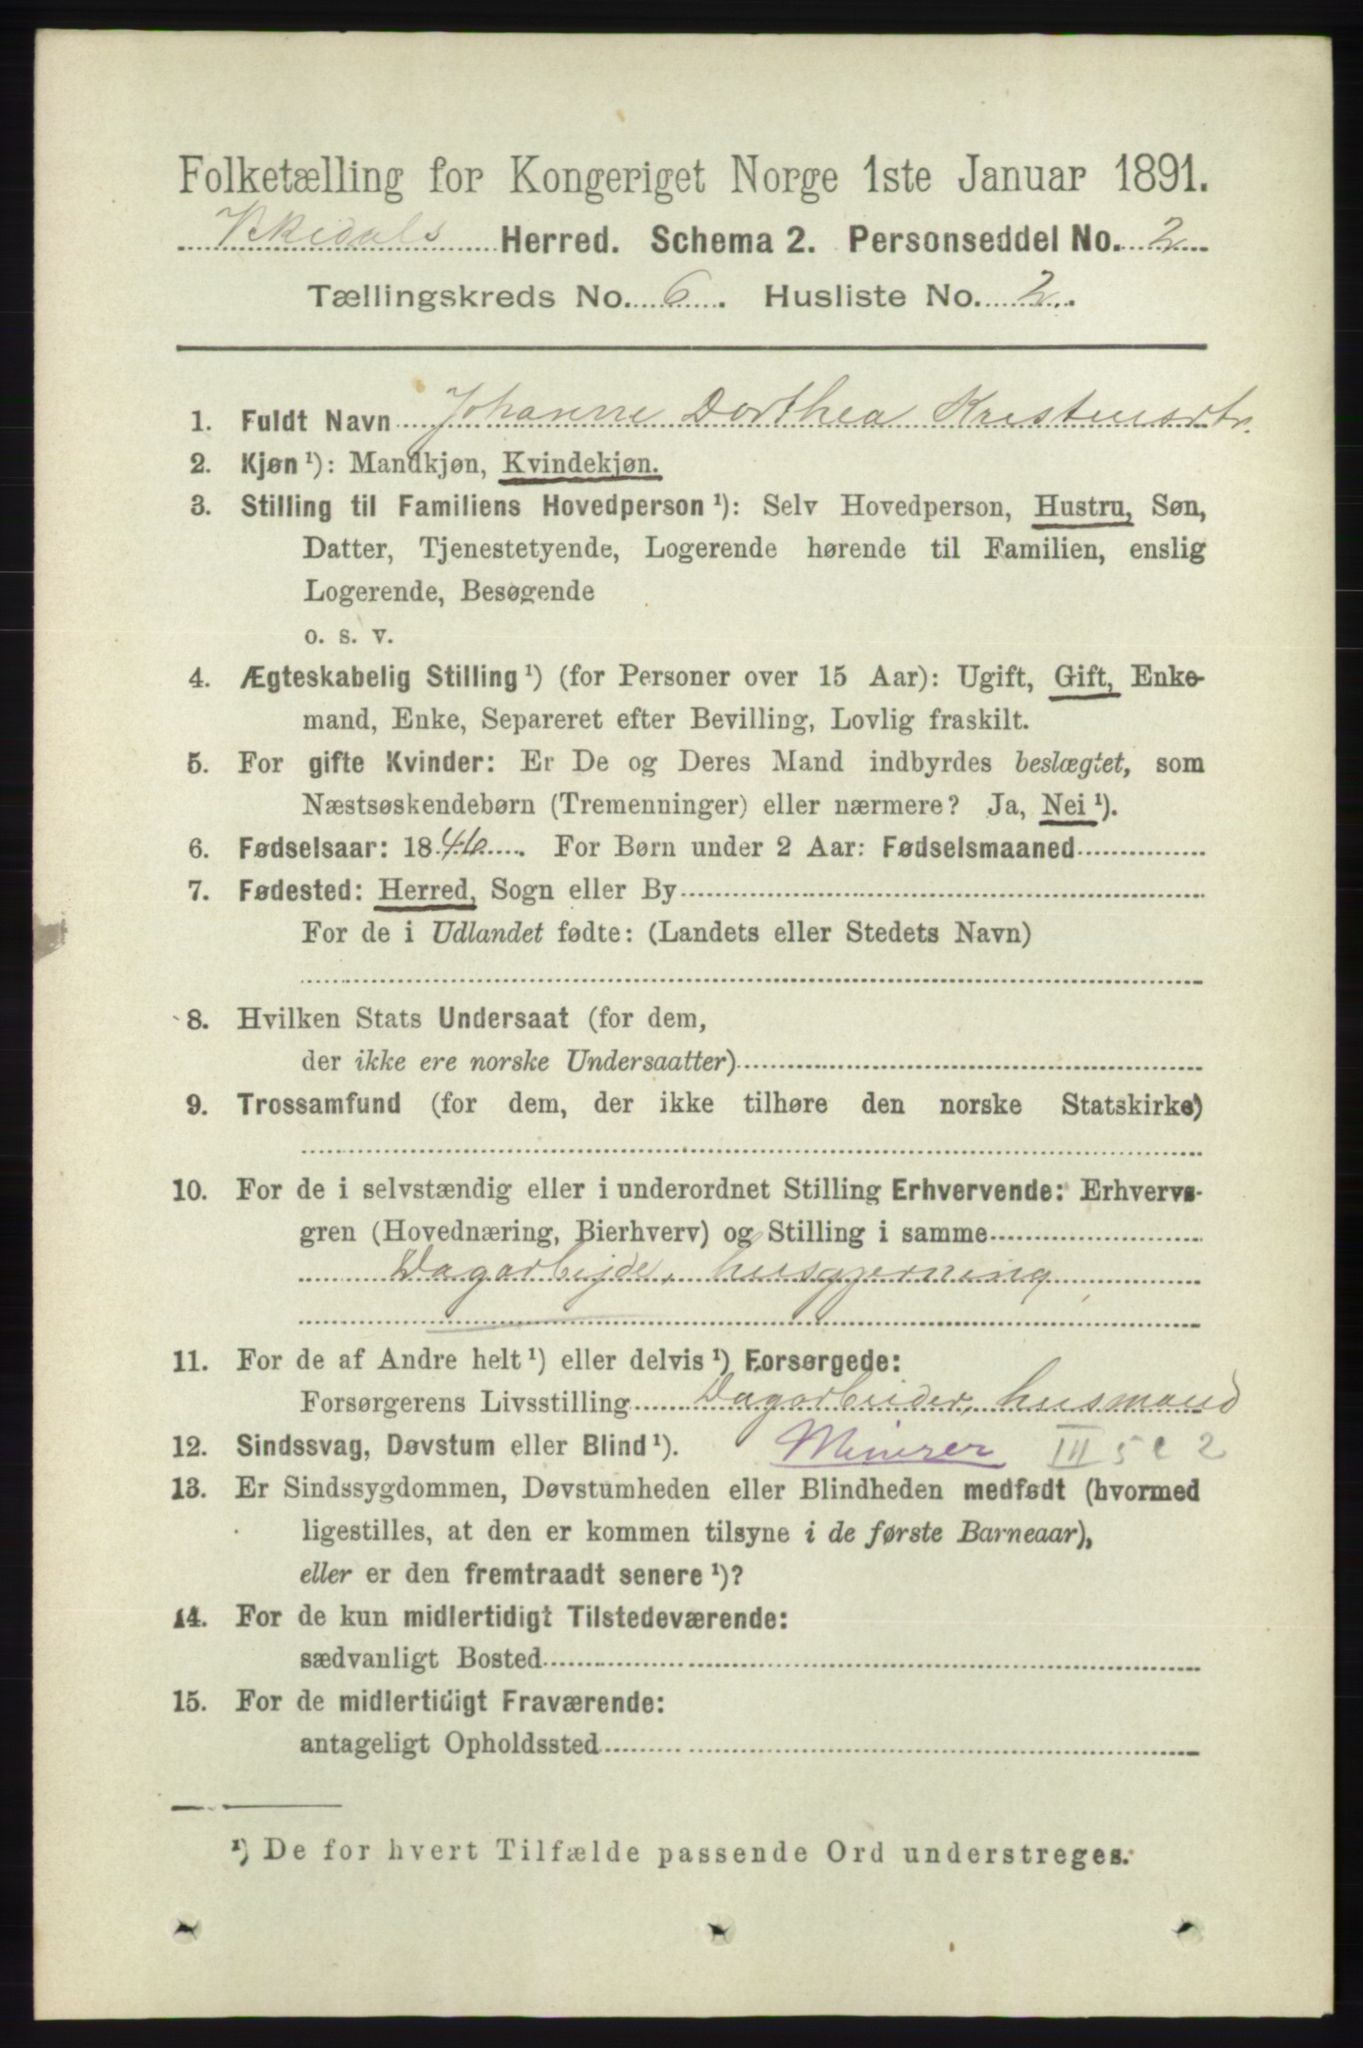 Folketælling for Kongeriget Norge 1ste Januar 1891.
Herred. Schema 2. Personseddel No. 2
Tællingskreds No. 6. Husliste No. 2.
1. Fuldt Navn Johanne Dorthea Kristensdtr.
2. Kjøn ¹): Mandkjøn, Kvindekjøn.
3. Stilling til Familiens Hovedperson ¹): Selv Hovedperson, Hustru, Søn,
Datter, Tjenestetyende, Logerende hørende til Familien, enslig
Logerende, Besøgende
o. s. v.
4. Ægteskabelig Stilling ¹) (for Personer over 15 Aar): Ugift, Gift, Enke-
mand, Enke, Separeret efter Bevilling, Lovlig fraskilt.
5. For gifte Kvinder: Er De og Deres Mand indbyrdes beslægtet, som
Næstsøskendebørn (Tremenninger) eller nærmere? Ja, Nei ¹).
6. Fødselsaar: 1846. For Børn under 2 Aar: Fødselsmaaned
7. Fødested: Herred, Sogn eller By
For de i Udlandet fødte: (Landets eller Stedets Navn)
8. Hvilken Stats Undersaat (for dem,
der ikke ere norske Undersaatter)
9. Trossamfund (for dem, der ikke tilhøre den norske Statskirke)
10. For de i selvstændig eller i underordnet Stilling Erhvervende: Erhvervs-
gren (Hovednæring, Bierhverv) og Stilling i samme
Dagarbejde, husgjerning
11. For de af Andre helt ¹) eller delvis ¹) Forsørgede:
Forsørgerens Livsstilling Dagarbeider, husmand
12. Sindssvag, Døvstum eller Blind ¹). III 5 e 2
13. Er Sindssygdommen, Døvstumheden eller Blindheden medfødt (hvormed
ligestilles, at den er kommen tilsyne i de første Barneaar),
eller er den fremtraadt senere ¹)?
14. For de kun midlertidigt Tilstedeværende:
sædvanligt Bosted
15. For de midlertidigt Fraværende:
antageligt Opholdssted
¹) De for hvert Tilfælde passende Ord understreges.